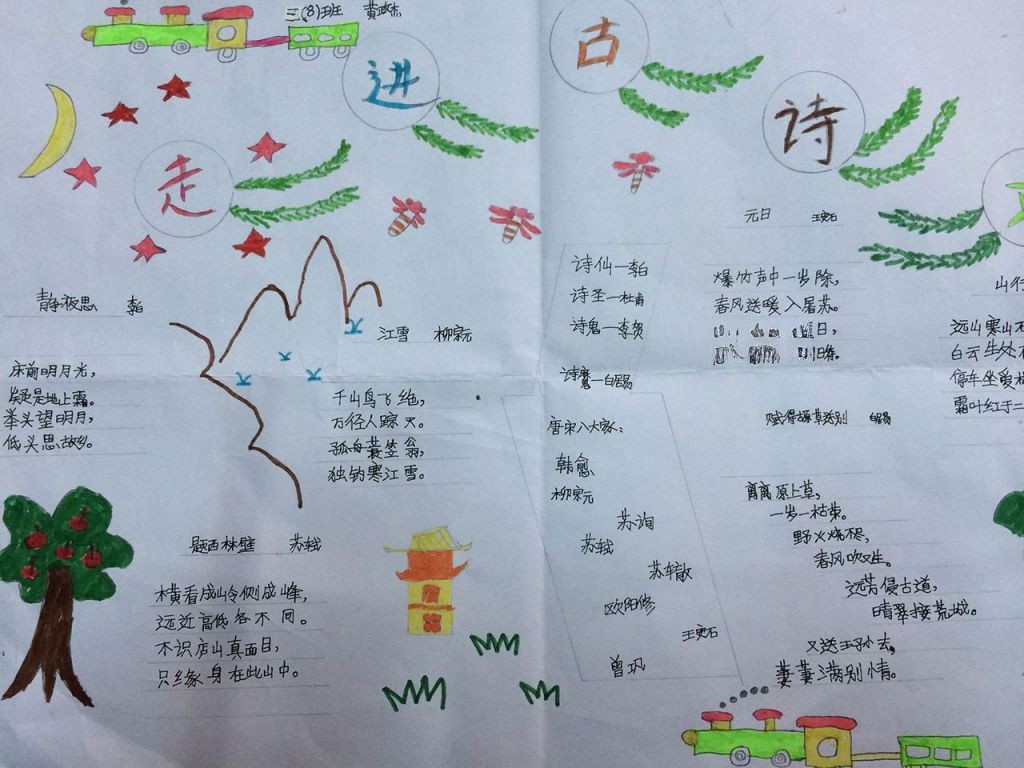 三(8)班 黄
走进古诗
静夜思 李白
床前明月光，
疑是地上霜。
举头望明月，
低头思故乡。
江雪 柳宗元
千山鸟飞绝，
万径人踪灭。
孤舟蓑笠翁，
独钓寒江雪。
题西林壁 苏轼
横看成岭侧成峰，
远近高低各不同。
不识庐山真面目，
只缘身在此山中。
诗仙—李白
诗圣—杜甫
诗鬼—李贺
诗魔—白居易
唐宋八大家：
韩愈
柳宗元
苏洵
苏轼
苏辙
欧阳修
王安石
曾巩
元日 王安石
爆竹声中一岁除，
春风送暖入屠苏。
日，
旧符。
赋得古原草送别 白居易
离离原上草，
一岁一枯荣。
野火烧不尽，
春风吹又生。
远芳侵古道，
晴翠接荒城。
又送王孙去，
萋萋满别情。
山行
远山寒山
白云生处
停车坐爱
霜叶红于二